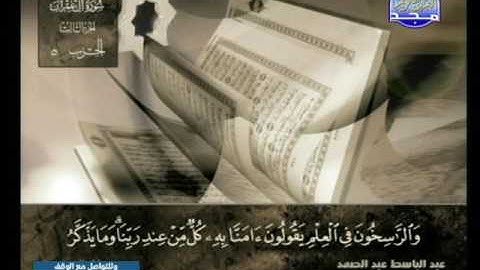 سورة آل عمران
الجزء الثالث
الحزب ٥
مجد
وَالرَّاسِخُونَ فِي الْعِلْمِ يَقُولُونَ ءَامَنَّا بِهِۦ كُلٌّ مِّنْ عِندِ رَبِّنَا وَمَا يَذَّكَّرُ
عبد الباسط عبد الصمد
وللتواصل مع الوقف